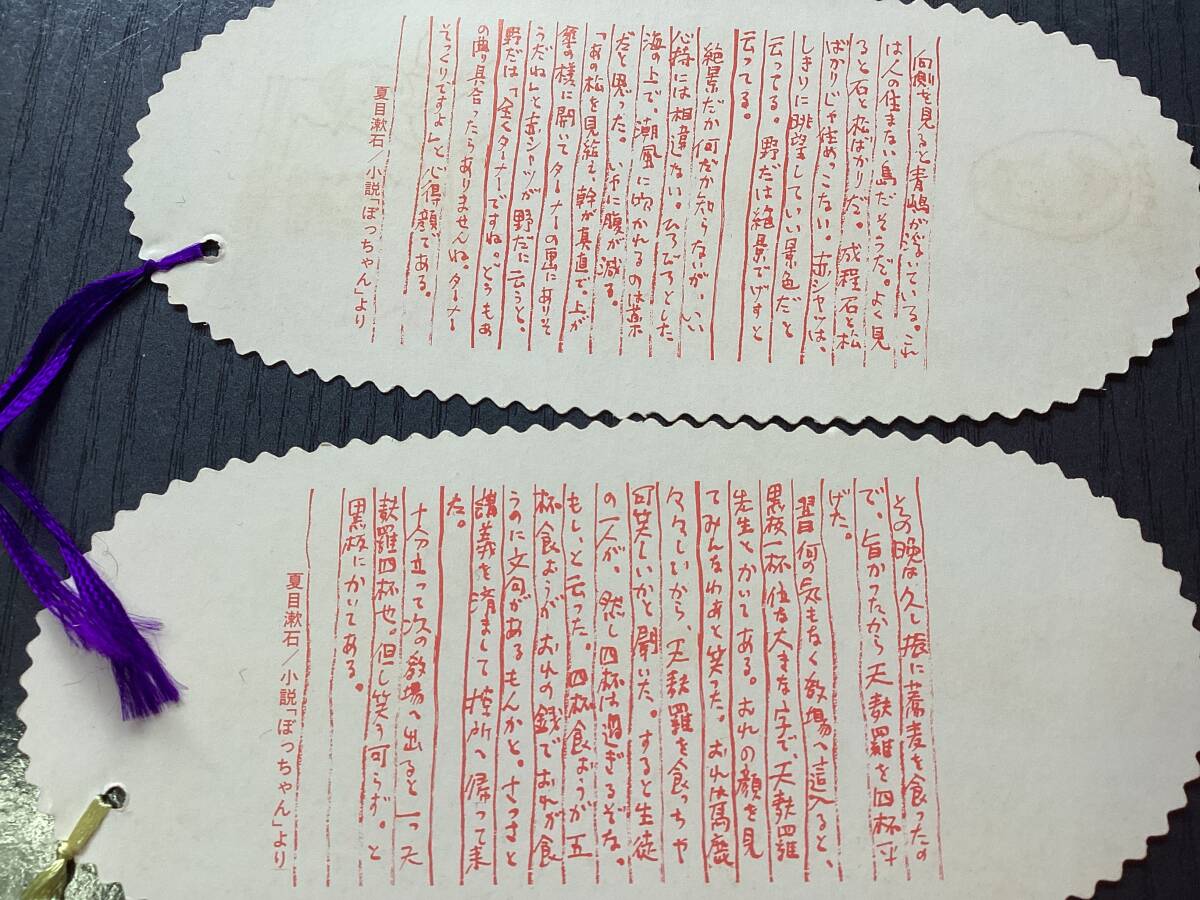 向側を見ると青嶋が浮いている。これ
は人の住まない島だそうだ。よく見
ると石と松ばかりだ。成程石と松
ばかりじゃ住めっこない。赤シャツは、
しきりに眺望していい景色だと
云ってる。野だは絶景でげすと
云ってる。
絶景だか何だか知らないが、いい
心持には相違ない。ひろびろとした
海の上で、潮風に吹かれるのは薬
だと思った。いやに腹が減る。
「あの松を見給え、幹が真直で、上が
傘の様に開いてターナーの画にありそ
うだね」と赤シャツが野だに云うと、
野だは「全くターナーですね。どうもあ
の曲り具合ったらありませんね。ターナー
そっくりですよ」と心得顔である。
夏目漱石/小説「ぼっちゃん」より
その晩は久し振に蕎麦を食ったの
で、旨かったから天麩羅を四杯平
げた。
翌日何の気もなく教場へ這入ると、
黒板一杯位な大きな字で、天麩羅
先生とかいてある。おれの顔を見
てみんなわあと笑った。おれは馬鹿
々々しいから、天麩羅を食っちゃ
可笑しいかと聞いた。すると生徒
の一人が、然し四杯は過ぎるぞな、
もし、と云った。四杯食おうが五
杯食おうがおれの銭でおれが食
うのに文句があるもんかと、さっさと
講義を済まして控所へ帰って来
た。
十分立って次の教場へ出ると一つ天
麩羅四杯也。但し笑う可らず。と
黒板にかいてある。
夏目漱石/小説「ぼっちゃん」より